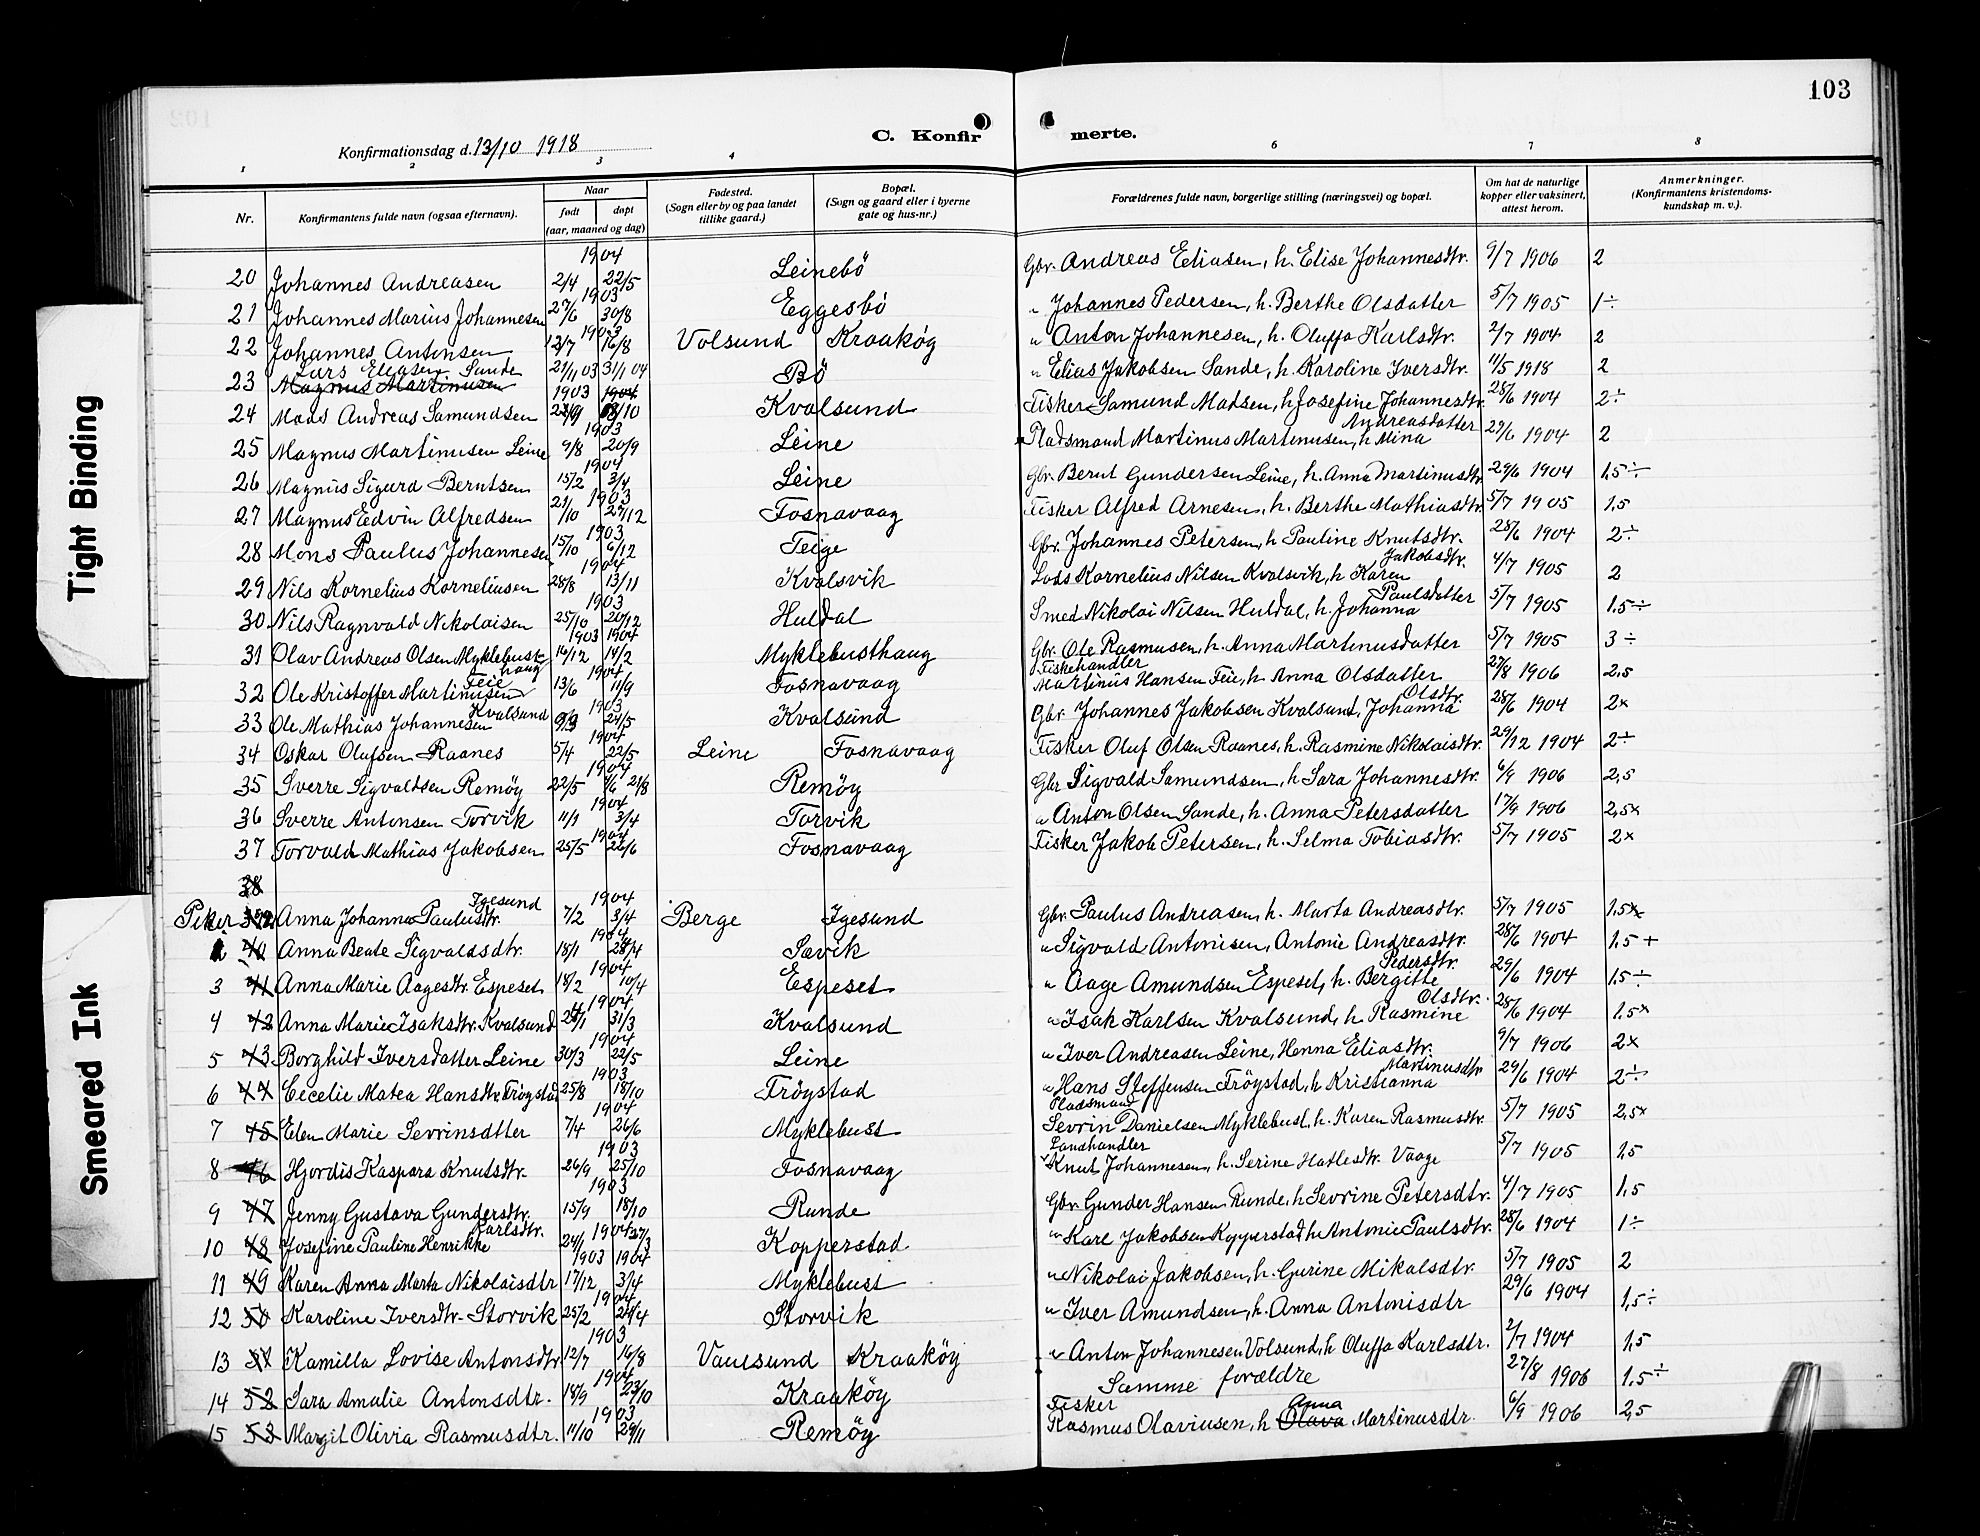 103
C. Konfirmerte.
Konfirmationsdag d. 13/10 1918
1 2 3 4 6 7 8
Nr. Konfirmantens fulde navn (ogsaa efternavn). Naar født døpt (aar, maaned og dag) Fødested. (Sogn eller by og paa landet tillike gaard.) Bopæl. (Sogn og gaard eller i byerne gate og hus-nr.) Forældrenes fulde navn, borgerlige stilling (næringsvei) og bopæl. Om hat de naturlige kopper eller vaksinert, attest herom. Anmerkninger. (Konfirmantens kristendomskundskap m. v.).
20 Johannes Andreasen 1904 2/4 22/5 Leinebö Gbr. Andreas Eliasen, h. Elise Johannesdtr. 9/7 1906 2
21 Johannes Marius Johannesen 1903 27/6 30/8 Eggesbö " Johannes Pedersen, h. Berthe Olsdatter 5/7 1905 1÷
22 Johannes Antonsen 1903 12/7 16/8 Volsund Kraakøy " Anton Johannesen, h. Oluffa Karlsdtr. 2/7 1904 2
23 Lars Eliasen Sande Magnus Martinusen 21/11 03 31/1 04 Bö " Elias Jakobsen Sande, h. Karoline Iversdtr. 11/5 1918 2
24 Mads Andreas Samundsen 1903 1904 22/9 18/10 Kvalsund Fisker Samund Madsen, h Josefine Johannesdtr. 28/6 1904 2÷
25 Magnus Martinusen Leine 1903 9/8 20/9 Leine Pladsmand Martinus Martinusen, h Mina Andreasdatter 27/6 1904 2
26 Magnus Sigurd Berntsen 1904 15/2 3/4 Leine Gbr. Bernt Gundersen Leine, h. Anna Martinusdtr 29/6 1904 1,5÷
27 Magnus Edvin Alfredsen 1903 21/10 27/12 Fosnavaag Fisker Alfred Arnesen, h. Berthe Mathiasdtr. 5/7 1905 1,5
28 Mons Paulus Johannesen 1903 15/10 6/12 Teige Gbr. Johannes Petersen, h Pauline Knutsdtr. 28/6 1904 2÷
29 Nils Kornelius Korneliusen 1904 28/8 13/11 Kvalsvik Lods Kornelius Nilsen Kvalsvik, h Karen Jakobsdtr. 4/7 1905 2
30 Nils Ragnvald Nikolaisen 1903 25/10 20/12 Huldal Smed Nikolai Nilsen Huldal, h. Johanna Paulsdatter 5/7 1905 1.5÷
31 Olav Andreas Olsen Myklebusthaug 1903 1904 16/12 14/2 Myklebusthaug Gbr. Ole Rasmusen, h. Anna Martinusdatter 5/7 1905 3÷
32 Ole Kristoffer Martinusen Feie 1904 13/6 11/9 Fosnavaag Fiskehandler Martinus Hansen Feie, h Anna Olsdatter 27/8 1906 2,5
33 Ole Mathias Johannesen Kvalsund 1903 9/3 24/5 Kvalsund Gbr. Johannes Jakobsen Kvalsund, Johanna Olsdtr. 28/6 1904 2x
34 Oskar Olufsen Raanes 1904 5/4 22/5 Leine Fosnavaag Fisker Oluf Olsen Raanes, h. Rasmine Nikolaisdtr. 29/12 1904 2÷
35 Sverre Sigvaldsen Remöy 1904 22/5 4/6 21/8 Remöy Gbr Sigvald Samundsen, h Sara Johannesdtr. 6/9 1906 2,5
36 Sverre Antonsen Torvik 1904 11/1 3/4 Torvik " Anton Olsen Sande, h. Anna Petersdatter 17/9 1906 2,5x
37 Torvald Mathias Jakobsen 1904 25/5 26/6 Fosnavaag Fisker Jakob Petersen, h. Selma Tobiasdtr. 5/7 1905 2x
38
Piker 39 Anna Johanna Paulusdtr. Igesund 1904 7/2 3/4 Berge Igesund Gbr. Paulus Andreasen, h. Marta Andreasdtr. 5/7 1905 1.5x
2 40 Anna Beate Sigvaldsdtr. 1904 18/1 24/4 Sævik " Sigvald Antonisen, Antonie Andreasdtr. 28/6 1904 1,5+
3 41 Anna Marie Aagesdtr. Espeset 1904 18/2 10/4 Espeset " Aage Amundsen Espeset, h. Bergitte Pedersdtr. 29/6 1904 1.5÷
4 42 Anna Marie Isaksdtr. Kvalsund 1904 24/1 31/3 Kvalsund " Isak Karlsen Kvalsund, h Rasmine Olsdtr. 28/6 1904 1.5x
5 43 Borghild Iversdatter Leine 1904 30/3 22/5 Leine " Iver Andreasen Leine, Henna Eliasdtr. 9/7 1906 2x
6 44 Cecelie Matea Hansdtr. Fröystad 1903 25/8 18/10 Fröystad " Hans Steffensen Fröystad, h Kristianna Martinusdtr 29/6 1904 2÷
7 45 Elen Marie Sevrinsdtter 1904 7/4 26/6 Myklebust Pladsmand Sevrin Danielsen Myklebust, h. Karen Rasmusdtr. 5/7 1905 2,5x
8 46 Hjordis Kaspara Knutsdtr. 1903 26/9 25/10 Fosnavaag Landhandler Knut Johannesen, h. Serine Hatlesdtr. Vaage 5/7 1905 1,5
9 47 Jenny Gustava Gundersdtr. 1903 15/9 18/10 Runde Gbr. Gunder Hansen Runde, h Sevrine Petersdtr. 4/7 1905 1,5
10 48 Josefine Pauline Henrikke Karlsdtr. 1904 24/1 27/3 Kopperstad " Karl Jakobsen Kopperstad h. Antonie Paulsdtr. 28/6 1904 1÷
11 49 Karen Anna Marta Nikolaisdtr 1903 1904 17/12 3/4 Myklebust " Nikolai Jakobsen, h. Gurine Mikalsdtr. 5/7 1905 2
12 50 Karoline Iversdtr. Storvik 1904 25/2 24/4 Storvik " Iver Amundsen, h. Anna Antonisdtr 29/6 1904 1,5÷
13 51 Kamilla Lovise Antonsdtr 1903 12/7 16/8 Vaulsund Kraaköy " Anton Johannesen Volsund, h Oluffa Karlsdtr. 2/7 1904 1,5
14 52 Sara Amalie Antonsdtr. 1904 18/9 23/10 Kraaköy Samme forældre 27/8 1906 1.5÷
15 53 Margit Olivia Rasmusdtr. 1903 11/10 29/11 Remöy Fisker Rasmus Olaviusen, h Olava Anna Martinusdtr. 6/9 1906 2,5
Tight Binding
Smeared Ink